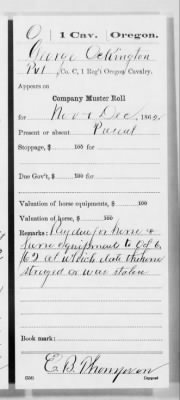 O | 1 Cav. | Oregon.
George Ockington
Pvt, Co. C, 1 Reg't Oregon Cavalry.
Appears on
Company Muster Roll
for Nov & Dec, 1862.
Present or absent
Stoppage, $ 100 for
Due Gov't, $ 100 for
Valuation of horse equipments, $ 100
Valuation of horse, $ 100
Remarks: Pay due for horse &
horse equipment to Oct 6
62 at which date the horse
strayed or was stolen
Book mark:
E. B. Thompson
(358) Copyist.